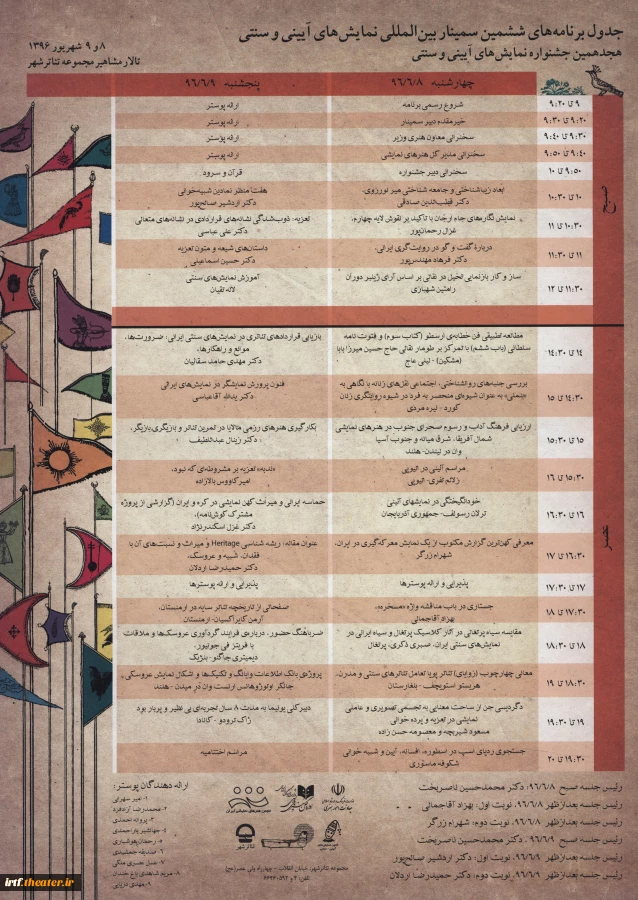 جدول برنامه‌های ششمین سمینار بین‌المللی نمایش‌های آیینی و سنتی
هجدهمین جشنواره نمایش‌های آیینی و سنتی
۸ و ۹ شهریور ۱۳۹۶
تالار مشاهیر مجموعه تئاترشهر
چهارشنبه ۹۶/۶/۸
پنجشنبه ۹۶/۶/۹
صبح
۹ تا ۹:۲۰
شروع رسمی برنامه
ارائه پوستر
۹:۲۰ تا ۹:۳۰
خیرمقدم دبیر سمینار
ارائه پوستر
۹:۳۰ تا ۹:۴۰
سخنرانی معاون هنری وزیر
ارائه پوستر
۹:۴۰ تا ۹:۵۰
سخنرانی مدیر کل هنرهای نمایشی
ارائه پوستر
۹:۵۰ تا ۱۰
سخنرانی دبیر جشنواره
قرآن و سرود
۱۰ تا ۱۰:۳۰
ابعاد زیباشناختی و جامعه شناختی میر نوروزی.
دکتر قطب‌الدین صادقی
هفت منظر نمادین شبیه‌خوانی
دکتر اردشیر صالح‌پور
۱۰:۳۰ تا ۱۱
نمایش نگاره‌های جام ارجان با تاکید بر نقوش لایه چهارم.
غزال رحمان‌پور
تعزیه: ذوب‌شدگی نشانه‌های قراردادی در نشانه‌های متعالی
دکتر علی عباسی
۱۱ تا ۱۱:۳۰
دربارهٔ گفت و گو در روایت‌گری ایرانی.
دکتر فرهاد مهندس‌پور
داستان‌های شیعه و متون تعزیه
دکتر حسین اسماعیلی
۱۱:۳۰ تا ۱۲
ساز و کار بازنمایی تخیل در نقالی بر اساس آرای ژیلبر دوران
رامتین شهبازی
آموزش نمایش‌های سنتی
لاله تقیان
عصر
۱۴ تا ۱۴:۳۰
مطالعه تطبیقی فن خطابه‌ی ارسطو (کتاب سوم) و فتوت نامه
سلطانی (باب ششم) با تمرکز بر طومار نقالی حاج حسین میرزا بابا
(مشکین) - لیلی عاج
بازیابی قراردادهای تئاتری در نمایش‌های سنتی ایرانی؛ ضرورت‌ها،
موانع و راهکارها.
دکتر مهدی حامد سقائیان
۱۴:۳۰ تا ۱۵
بررسی جنبه‌های روانشناختی، اجتماعی نقل‌های زنانه با نگاهی به
به عنوان شیوه‌ای منحصر به فرد در شیوه روایتگری زنان
کورد - لیره مردی
فنون پرورش نمایشگر در نمایش‌های ایرانی
دکتر یدالله آقاعباسی
۱۵ تا ۱۵:۳۰
ارزیابی فرهنگ آداب و رسوم صحرای جنوب در هنرهای نمایشی
شمال آفریقا، شرق میانه و جنوب آسیا
وان در لیندن- هلند
بکارگیری هنرهای رزمی مالایا در تمرین تئاتر و بازیگری بازیگر.
دکتر زینال عبداللطیف
۱۵:۳۰ تا ۱۶
مراسم آئینی در اتیوپی
زلالم تفری- اتیوپی
«ندبه» تعزیه بر مشروطه‌ای که نبود.
امیرکاووس بالازاده
۱۶ تا ۱۶:۳۰
خودانگیختگی در نمایشهای آئینی
ترلان رسولف- جمهوری آذربایجان
حماسه ایرانی و میراث کهن نمایشی در کره و ایران (گزارشی از پروژه
مشترک کوش‌نامه).
دکتر غزل اسکندرنژاد
۱۶:۳۰ تا ۱۷
معرفی کهن‌ترین گزارش مکتوب از یک نمایش معرکه‌گیری در ایران.
شهرام زرگر
عنوان مقاله: ریشه شناسی Heritage و میراث و نسبت‌های آن با
فقدان، شبیه و عروسک.
دکتر حمیدرضا اردلان
۱۷ تا ۱۷:۳۰
پذیرایی و ارائه پوسترها
پذیرایی و ارائه پوسترها
۱۷:۳۰ تا ۱۸
جستاری در باب مناقشه واژه «مسخره»
بهزاد آقاجمالی
صفحاتی از تاریخچه تئاتر سایه در ارمنستان.
آرمن کابراکسیان- ارمنستان
۱۸ تا ۱۸:۳۰
مقایسه سیاه پرتغالی در آثار کلاسیک پرتغال و سیاه ایرانی در
نمایش‌های سنتی ایران. صبری ذکری- پرتغال
ضرباهنگ حضور، درباره‌ی فرایند گردآوری عروسک‌ها و ملاقات
با فریتز فی جولیور.
دیمیتری جاگنو- بلژیک
۱۸:۳۰ تا ۱۹
معانی چهارچوب (زوایای) تئاتر پویا تعامل تئاترهای سنتی و مدرن.
هریستو استویچف - بلغارستان
پروژه‌ی بانک اطلاعات وایانگ و تکنیک‌ها و اشکال نمایش عروسکی
جانگر اوتوژوهانس ارنست وان در میدن- هلند
۱۹ تا ۱۹:۳۰
دگردیسی جن از ساحت معنایی به تجسمی تصویری و عاملی
نمایشی در تعزیه و پرده خوانی
مسعود شیربچه و معصومه حسن زاده
دبیرکلی یونیما به مدت ۸ سال تجربه‌ای بی نظیر و پربار بود
ژاک ترودو - کانادا
۱۹:۳۰ تا ۲۰
جستجوی ردپای اسب در اسطوره، افسانه، آیین و شبیه خوانی
شکوفه ماسوری
مراسم اختتامیه
رئیس جلسه صبح ۹۶/۶/۸: دکتر محمدحسین ناصربخت
رئیس جلسه بعدازظهر ۹۶/۶/۸، نوبت اول: بهزاد آقاجمالی
رئیس جلسه بعدازظهر ۹۶/۶/۸، نوبت دوم: شهرام زرگر
رئیس جلسه صبح ۹۶/۶/۹: دکتر محمدحسین ناصربخت
رئیس جلسه بعدازظهر ۹۶/۶/۹، نوبت اول: دکتر اردشیر صالح‌پور
رئیس جلسه بعدازظهر ۹۶/۶/۹، نوبت دوم: دکتر حمیدرضا اردلان
تئاترشهر
مجموعه تئاترشهر، خیابان انقلاب - چهارراه ولی عصر(عج)
ارائه دهندگان پوستر:
۱- امیر سهرابی
۲- محمدرضا آزادفرد
۳- پروانه احمدی
۴- جهانشیر یاراحمدی
۵- رحمان هوشیاری
۶- صادیقه جمشیدی
۷- عسل عصری ملکی
۸- مریم شاهدی باغ خندان
۹- مهدی دریایی
irtf.theater.ir